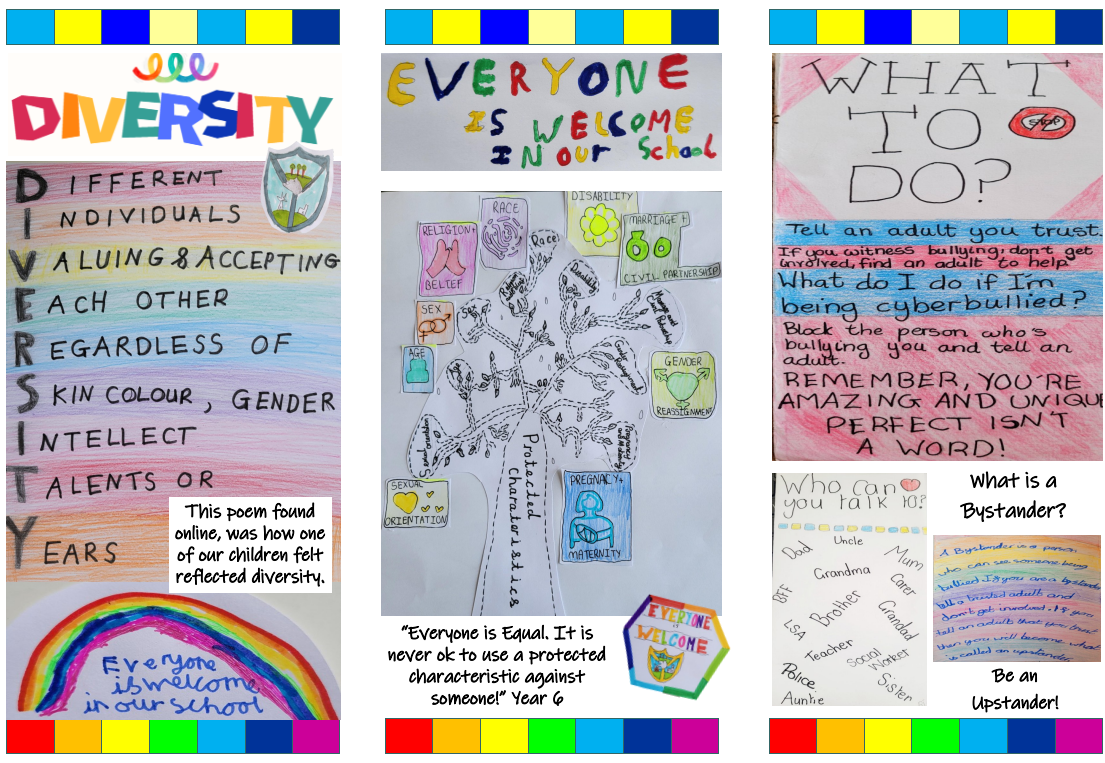 DIVERSITY
DIFFERENT
INDIVIDUALS
VALUING & ACCEPTING
EACH OTHER
REGARDLESS OF
SKIN COLOUR, GENDER
INTELLECT
TALENTS OR
YEARS
This poem found
online, was how one
of our children felt
reflected diversity.
Everyone
is welcome
in our school
EVERYONE
IS WELCOME
IN OUR School
DISABILITY
RACE
RELIGION +
BELIEF
MARRIAGE +
CIVIL PARTNERSHIP
SEX
AGE
GENDER
REASSIGNMENT
SEXUAL
ORIENTATION
PREGNANCY +
MATERNITY
Race
Disability
Sex
Marriage and
Civil Partnership
Gender
Reassignment
Sexual orientation
Pregnancy
and Maternity
Protected
Charateristics
"Everyone is Equal. It is
never ok to use a protected
characteristic against
someone!" Year 6
EVERYONE
IS
WELCOME
WHAT
TO
DO?
STOP
Tell an adult you trust.
If you witness bullying, don't get
involved, find an adult to help
What do I do if I'm
being cyberbullied?
Block the person who's
bullying you and tell an
adult.
REMEMBER, YOU'RE
AMAZING AND UNIQUE
PERFECT ISN'T
A WORD!
Who can
you talk to?
Dad
Uncle
Mum
Grandma
Carer
BFF
Brother
Grandad
LSA
Teacher
Social
Worker
Police
Sister
Auntie
What is a
Bystander?
A Bystander is a person
who can see someone being
bullied. If you are a bystander
tell a trusted adult and
don't get involved. If you
tell an adult that you trust
then you will become what
is called an upstander.
Be an
Upstander!